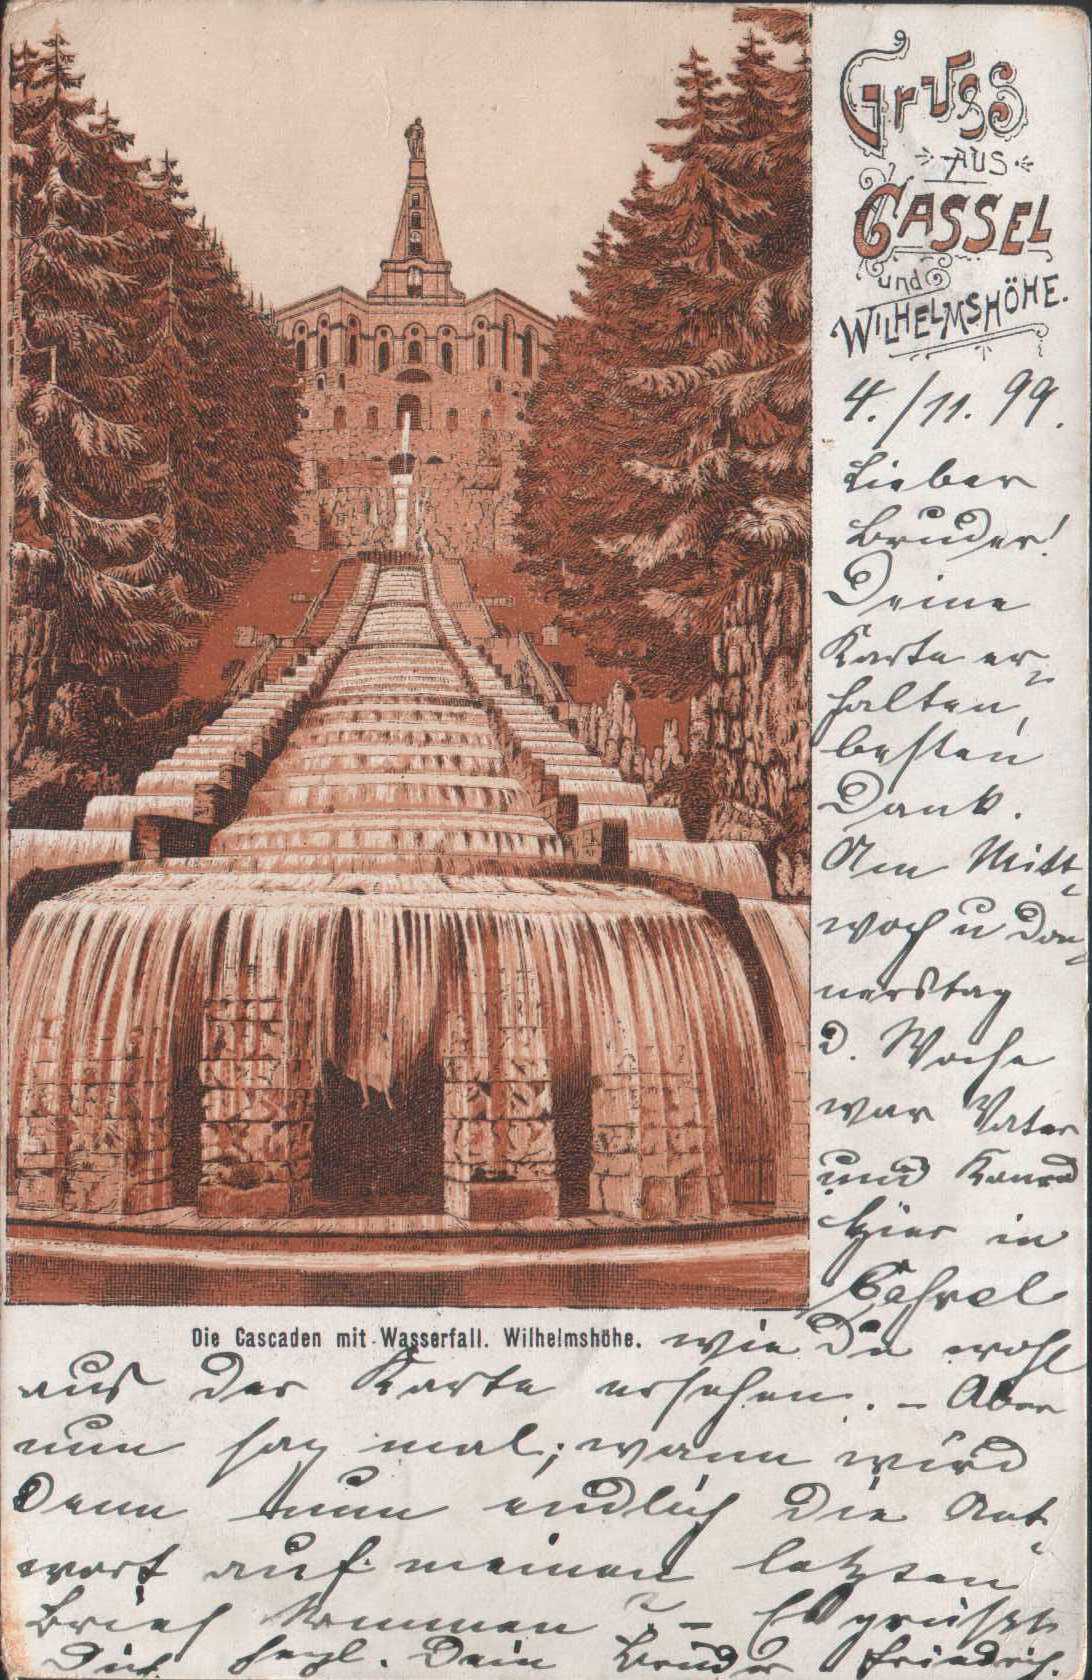 Gruss
AUS
CASSEL
und
WILHELMSHÖHE.
4./11. 99.
Lieber
Bruder!
Deine
Karte er-
halten,
besten
Dank.
Am Mitt-
woch u Don-
nerstag
d. Woche
war Vater
und Konrad
hier in
Cassel
Die Cascaden mit Wasserfall. Wilhelmshöhe.
wie Du wohl
aus der Karte ersehen. – Aber
nun sag mal; wann wird
denn nun endlich die Ant-
wort auf meinen letzten
Brief kommen? – Es grüßt
Dich herzl. Dein Bruder Friedrich.